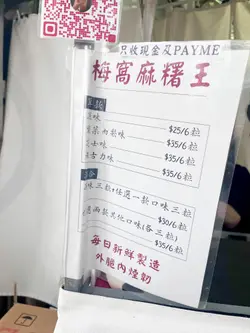 只收現金及PAYME
梅窩麻糬王
味 $25/6粒
菜肉鬆味 $35/6粒
味 $35/6粒
古力味 $35/6粒
味三粒+任選一款口味三粒
$30/6粒
兩款其他口味(各三粒)
$35/6粒
每日新鮮製造
外脆內煙韌